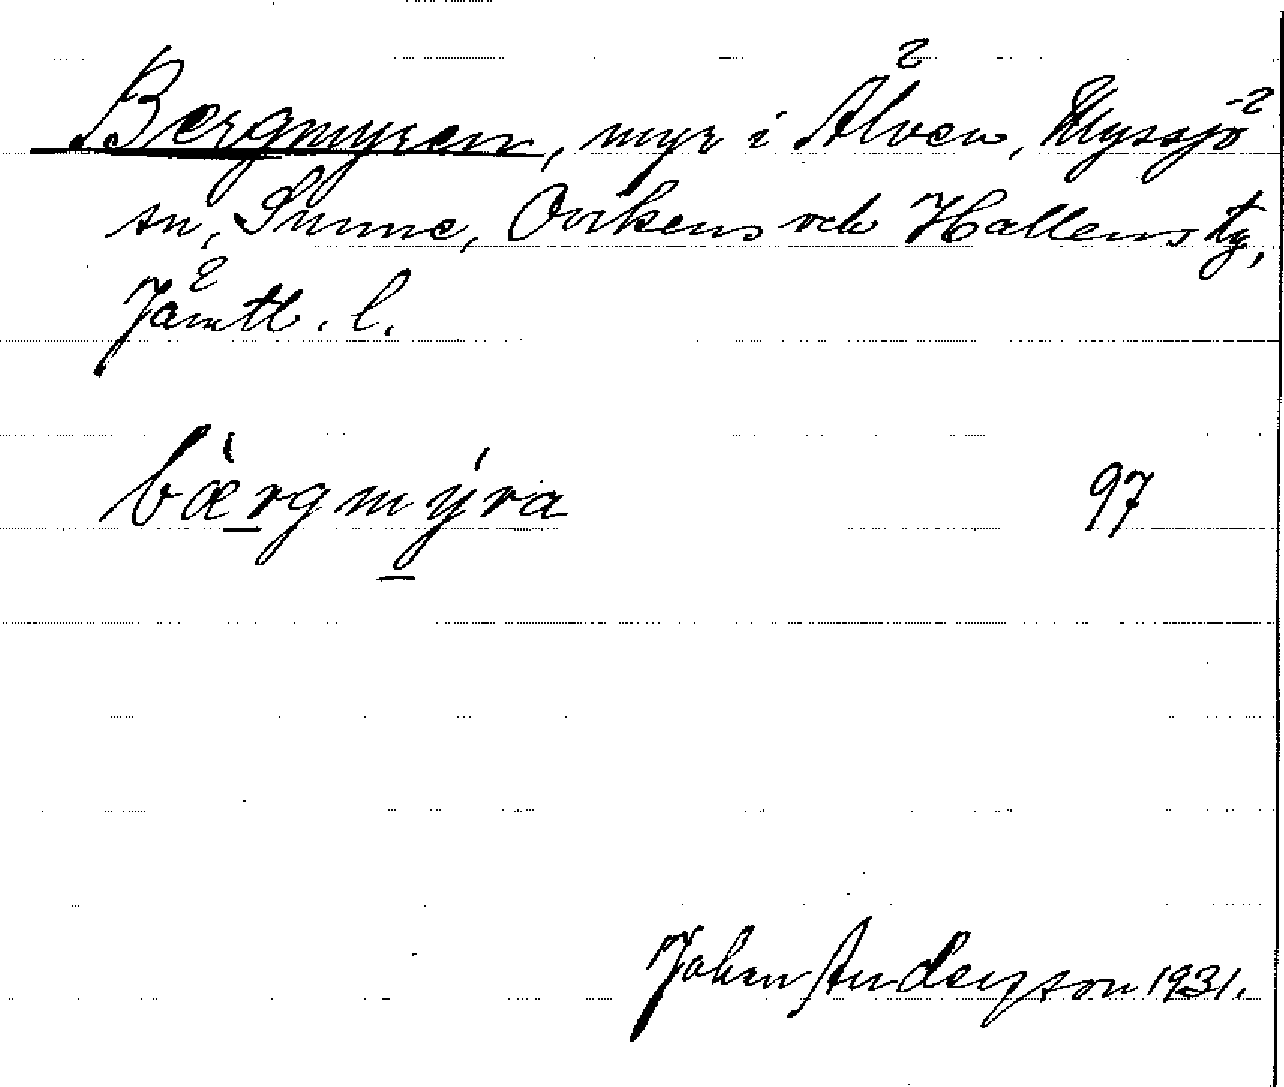 Bergmyren, myr i Älven, Myssjö
sn, Sunne, Ovikens och Hallens tg,
Jämtl. l.
bærgmýra 97
Johan Anderzson 1931.